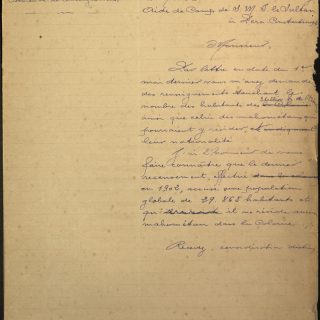 Aide de Camp de S. M. I. le Sultan
à Pera-Constantinople
Monsieur,
Par lettre en date du 1er
mai dernier vous m'avez demandé
des renseignements touchant le
nombre des habitants de
ainsi que celui des mahométans qui
pourraient y résider, et
leur nationalité
J'ai l'honneur de vous
faire connaître que le dernier
recensement, effectué
en 1902, accuse une population
globale de 29.862 habitants et
qu' il ne réside aucun
mahométan dans la Colonie.
Recevez, considération